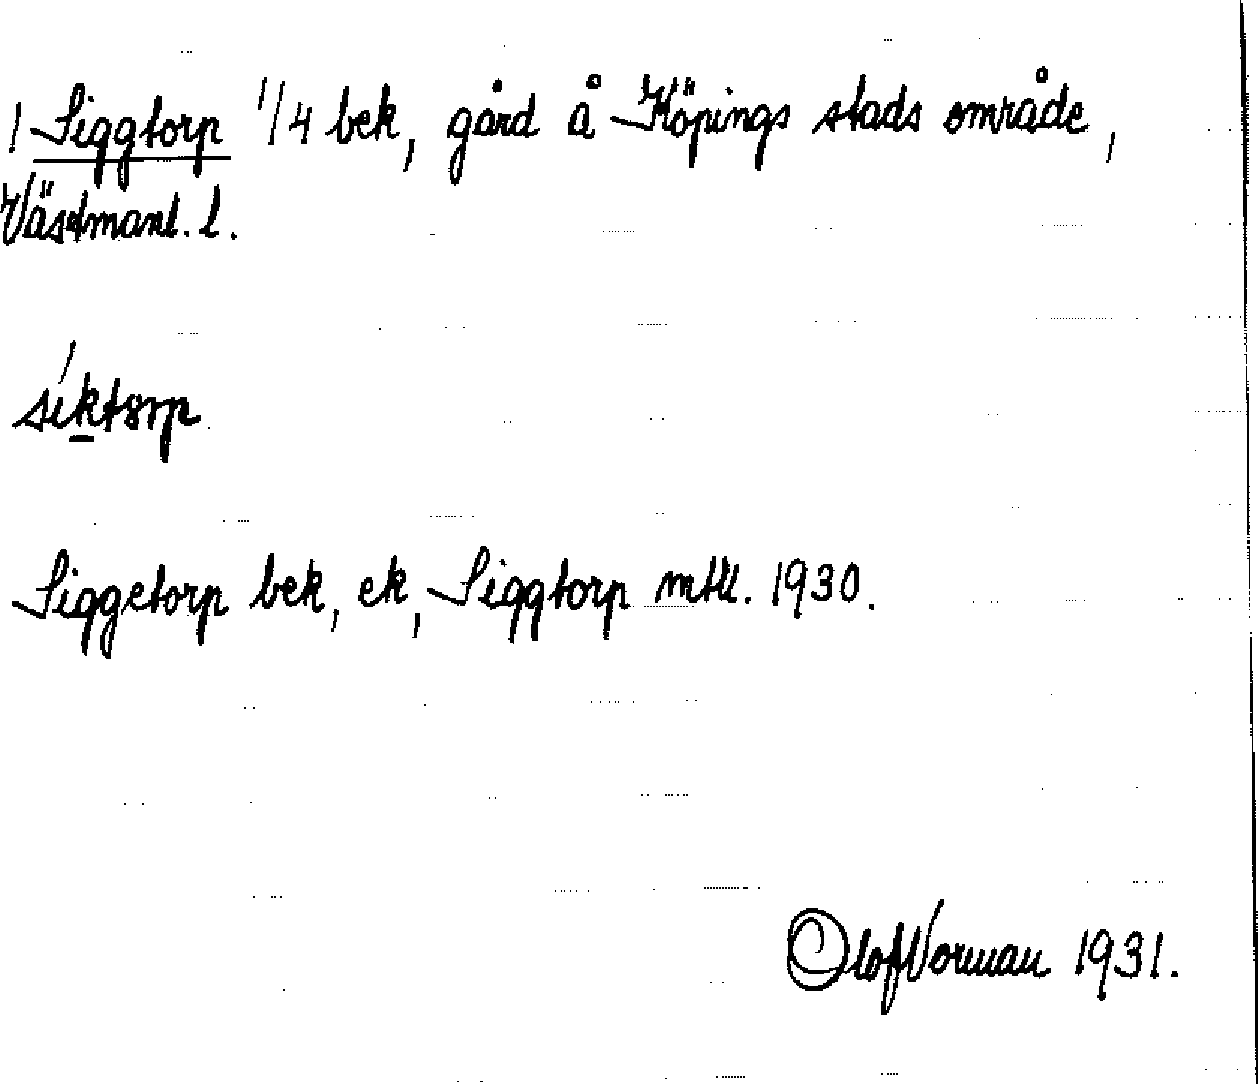 1 Siggtorp 1/4 bek, gård å Köpings stads område,
Västmanl. l.
síktorp
Siggetorp bek, ek, Siggtorp mtll. 1930.
Olof Norman 1931.